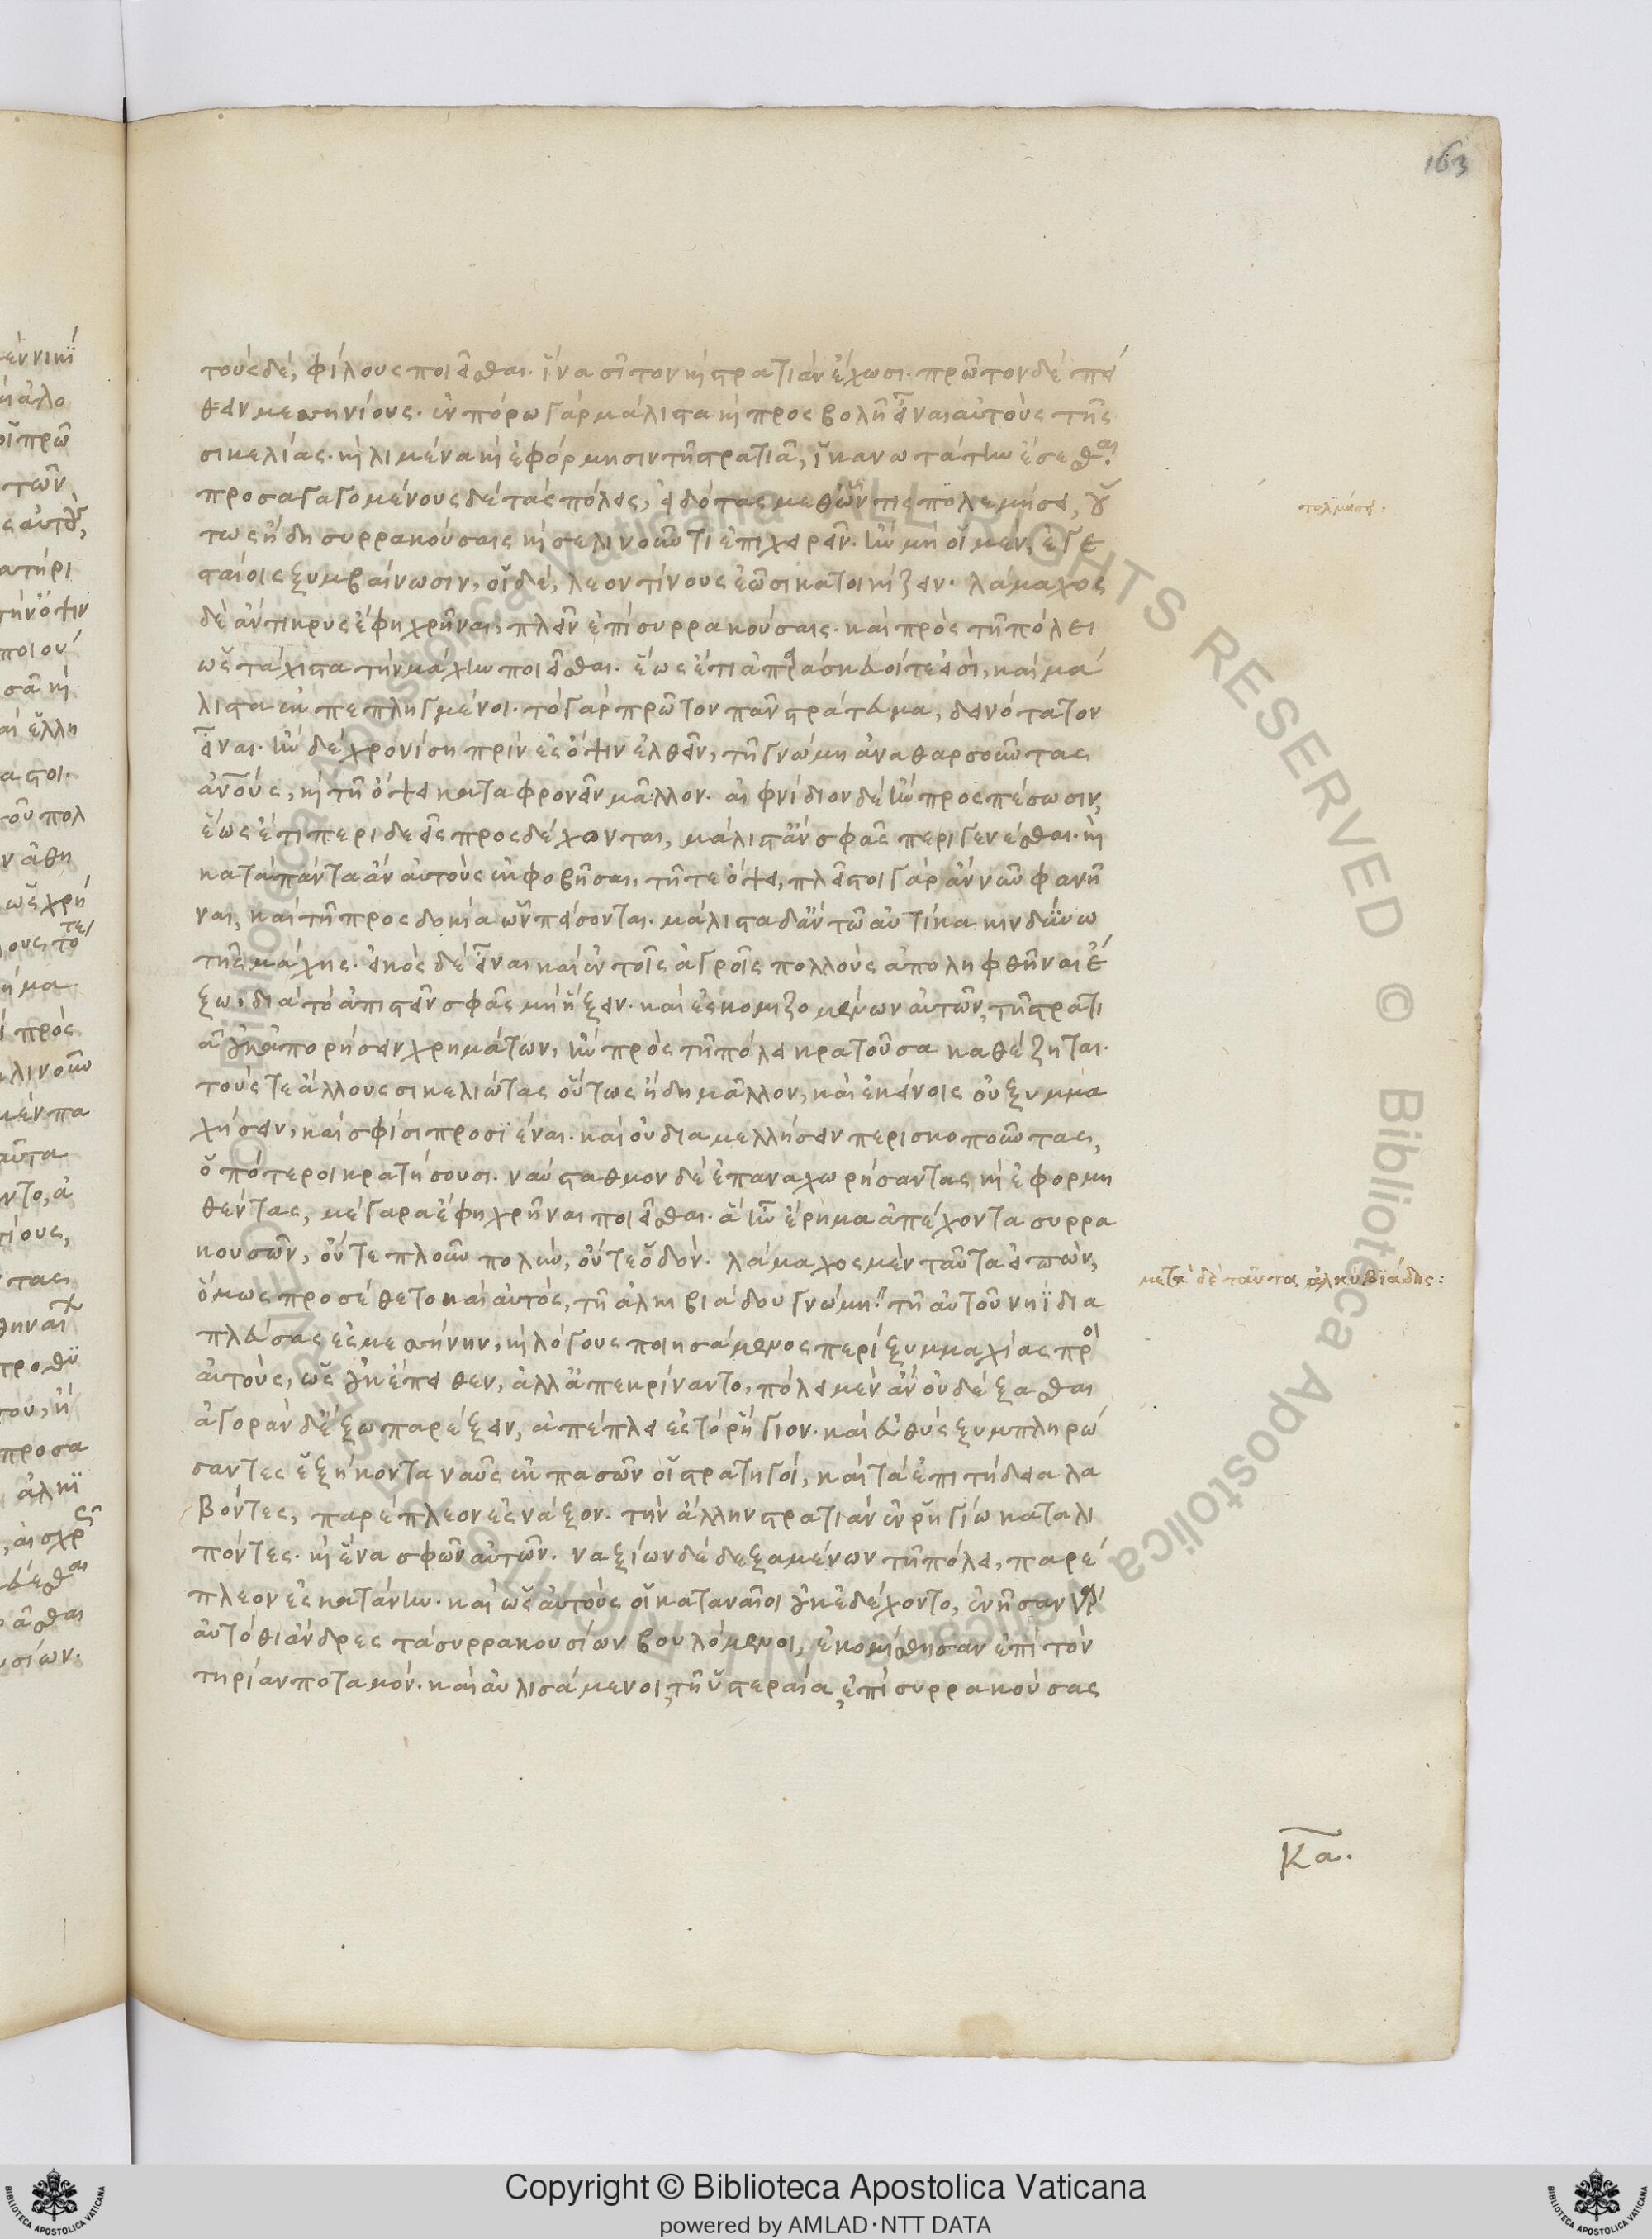 163
τοὺς δὲ, φίλους ποιεῖσθαι. ἵνα σῖτον καὶ στρατιὰν ἔχωσι. πρῶτον δὲ πεί
θειν μεσηνίους. ἐν πόρω γὰρ μάλιστα καὶ προσβολῆ εἶναι αὐτοὺς τῆς
σικελίας. καὶ λιμένα καὶ ἐφόρμησιν τῆ στρατιᾶ, ἱκανωτάτην ἔσεσθαι.
προσαγαγομένους δὲ τὰς πόλεις, εἰδότας μεθ ὧν τις πολεμήσει, οὕ
τως ἤδη συρρακούσαις καὶ σελινοῦντι ἐπιχειρεῖν. ἢν μὴ οἱ μὲν, ἐγε
σταίοις ξυμβαίνωσιν, οἱ δὲ, λεοντίνους ἐῶσι κατοικίζειν. λάμαχος
δὲ ἄντικρυς ἔφη χρῆναι, πλεῖν ἐπὶ συρρακούσαις. καὶ πρὸς τῆ πόλει
ὡς τάχιστα τὴν μάχην ποιεῖσθαι. ἕως ἔτι ἀπαράσκευοί τε εἰσὶ, καὶ μά
λιστα ἐκπεπληγμένοι. τὸ γὰρ πρῶτον πᾶν στράτευμα, δεινότατον
εἶναι. ἢν δὲ χρονίση πρὶν ἐς ὄψιν ἐλθεῖν, τῆ γνώμη ἀναθαρσοῦντας
ἀνους, καὶ τῆ ὄψει καταφρονεῖν μᾶλλον. αἰφνίδιον δὲ ἢν προσπέσωσιν,
ἕως ἔτι περιδεεῖς προσδέχονται, μάλιστ ἂν σφᾶς περιγενέσθαι. καὶ
κατὰ πάντα ἂν αὐτοὺς ἐκφοβῆσαι, τῆ τε ὄψει, πλεῖστοι γὰρ ἂν νῦν φανῆ
ναι, καὶ τῆ προσδοκία ὧν πείσονται. μάλιστα δ ἂν τῶ αὐτίκα κινδύνω
τῆς μάχης. εἰκὸς δὲ εἶναι καὶ ἐν τοῖς ἀγροῖς πολλοὺς ἀποληφθῆναι ἔ
ξω, διὰ τὸ ἀπιστεῖν σφᾶς μὴ ἥξειν. καὶ ἐσκομιζομένων αὐτῶν, τὴν στρατι
ὰν οὐκ ἀπορήσειν χρημάτων, ἢν πρὸς τῆ πόλει κρατοῦσα καθέζηται.
τούς τε ἄλλους σικελιώτας οὕτως ἤδη μᾶλλον, καὶ ἐκείνοις οὐ ξυμμα
χήσειν, καὶ σφίσι προσϊέναι. καὶ οὐ διαμελλήσειν περισκοποῦντας,
ὁπότεροι κρατήσουσι. ναύσταθμον δὲ ἐπαναχωρήσαντας καὶ ἐφορμη
θέντας, μέγαρα ἔφη χρῆναι ποιεῖσθαι. ἃ ἦν ἔρημα ἀπέχοντα συρρα
κουσῶν, οὔτε πλοῦν πολὺν, οὔτε ὁδόν. λάμαχος μὲν ταῦτα εἰπὼν,
ὅμως προσέθετο καὶ αὐτὸς, τῆ ἀλκιβιάδου γνώμη. τῆ αὐτοῦ νηῒ δια
πλεύσας ἐς μεσήνην, καὶ λόγους ποιησάμενος περὶ ξυμμαχίας πρὸς
αὐτοὺς, ὡς οὐκ ἔπειθεν, ἀλλ ἀπεκρίναντο, πόλει μὲν ἂν οὐ δέξασθαι
ἀγορὰν δ ἔξω παρέξειν, ἀπέπλει ἐς τὸ ῥήγιον. καὶ εὐθὺς ξυμπληρώ
σαντες ἑξήκοντα ναῦς ἐκ πασῶν οἱ στρατηγοί, καὶ τὰ ἐπιτήδεια λα
βόντες, παρέπλεον ἐς νάξον. τὴν ἄλλην στρατιὰν ἐν ῥηγίω καταλι
πόντες. καὶ ἕνα σφῶν αὐτῶν. ναξίων δὲ δεξαμένων τῆ πόλει, παρέ
πλεον ἐς κατάνην. καὶ ὡς αὐτοὺς οἱ καταναῖοι οὐκ ἐδέχοντο, ἐνῆσαν γὰρ
αὐτόθι ἄνδρες τὰ συρρακουσίων βουλόμενοι, ἐκομίσθησαν ἐπὶ τὸν
τηρίαν ποταμόν. καὶ αὐλισάμενοι, τῆ ὑστεραία, ἐπὶ συρρακούσας
τολμήσει:
μετὰ δὲ ταῦτα ἀλκυβϊάδης:
Κα.
Copyright © Biblioteca Apostolica Vaticana
powered by AMLAD·NTT DATA